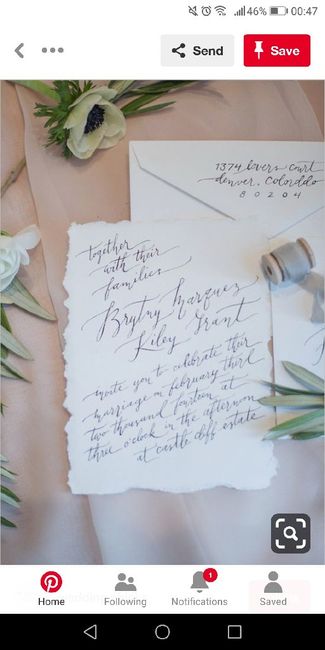 46% 00:47
Send
Save
1374 lovers court
denver, colorado
80204
together
with their
families
Brytny Marquez
Kiley Grant
invite you to celebrate their
marriage on february third
two thousand fourteen at
three o'clock in the afternoon
at castle cliff estate
1
Home Following Notifications Saved